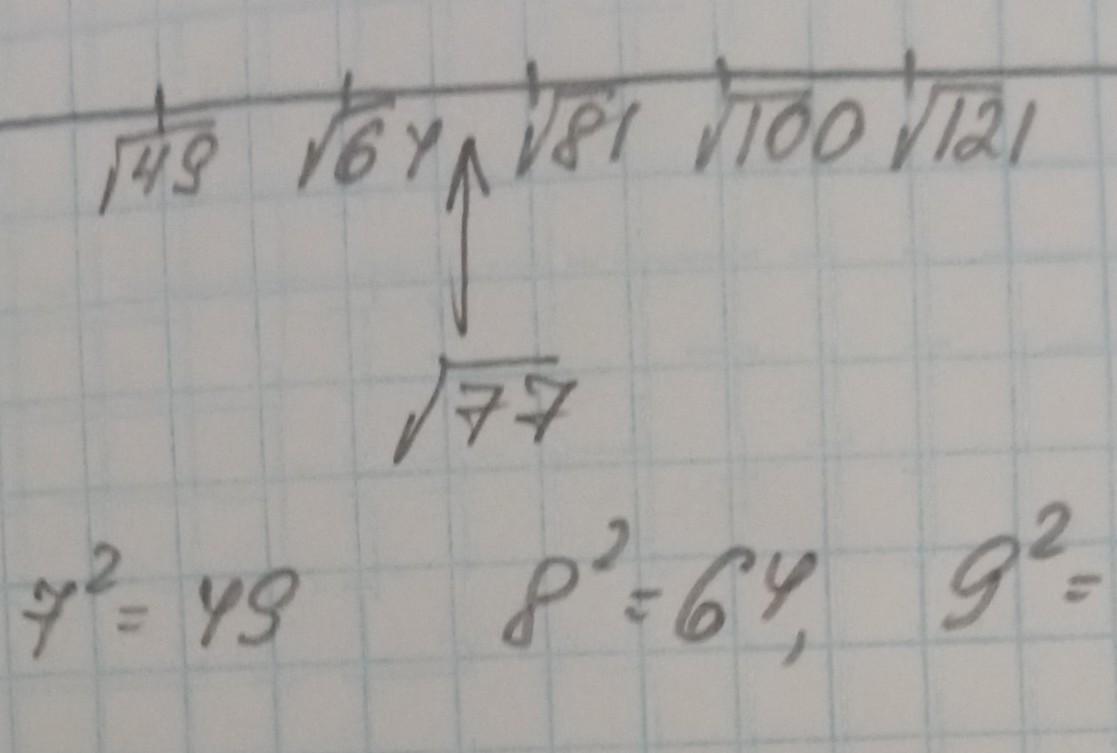 √49 √64 √81 √100 √121
√77
7² = 49 8² = 64, 9² =